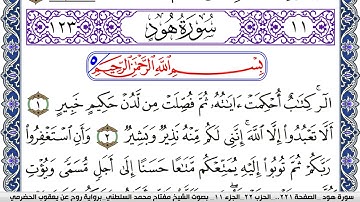 ١٢٣ سُورَةُ هُودٍ ١١
بِسْمِ ٱللَّهِ ٱلرَّحْمَٰنِ ٱلرَّحِيمِ
الٓر ۚ كِتَٰبٌ أُحْكِمَتْ ءَايَٰتُهُۥ ثُمَّ فُصِّلَتْ مِن لَّدُنْ حَكِيمٍ خَبِيرٍ ١
أَلَّا تَعْبُدُوٓا۟ إِلَّا ٱللَّهَ ۚ إِنَّنِى لَكُم مِّنْهُ نَذِيرٌ وَبَشِيرٌ ٢ وَأَنِ ٱسْتَغْفِرُوا۟
رَبَّكُمْ ثُمَّ تُوبُوٓا۟ إِلَيْهِ يُمَتِّعْكُم مَّتَٰعًا حَسَنًا إِلَىٰٓ أَجَلٍ مُّسَمًّى وَيُؤْتِ
سورة هود .. الصفحة ٢٢١.. الحزب ٢٢.. الجزء ١١ .. بصوت الشيخ مفتاح محمد السلطني .برواية روح عن يعقوب الحضرمي